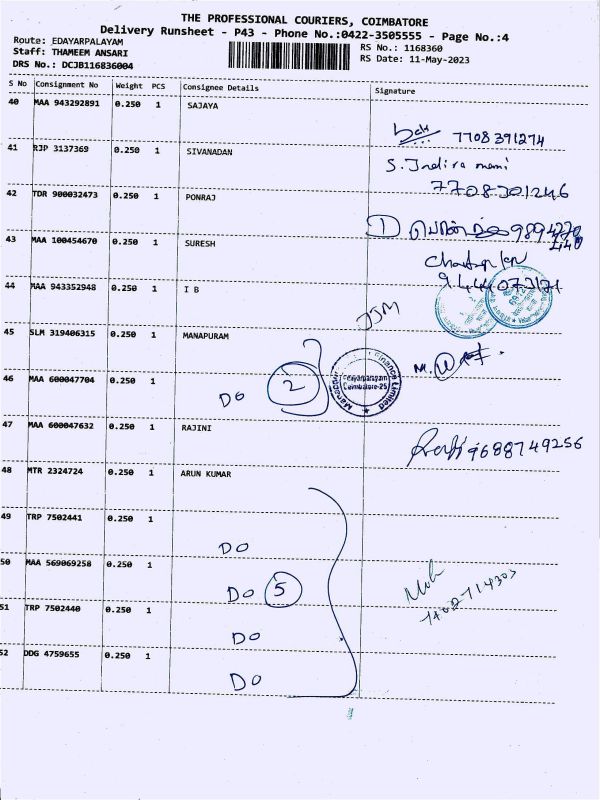 THE PROFESSIONAL COURIERS, COIMBATORE
Delivery Runsheet - P43 - Phone No.:0422-3505555 - Page No.:4
Route: EDAYARPALAYAM
RS No.: 1168360
Staff: THAMEEM ANSARI
RS Date: 11-May-2023
DRS No.: DCJB116836004
S No Consignment No Weight PCS Consignee Details Signature
40 MAA 943292891 0.250 1 SAJAYA
7708391274
41 RJP 3137369 0.250 1 SIVANADAN
S. Indira mani
7708301246
42 TDR 900032473 0.250 1 PONRAJ
1
43 MAA 100454670 0.250 1 SURESH
44 MAA 943352948 0.250 1 I B
JJM
45 SLM 319406315 0.250 1 MANAPURAM
46 MAA 600047704 0.250 1
DO 2
Finance Limited
Coimbatore-25
47 MAA 600047632 0.250 1 RAJINI
9688749256
48 MTR 2324724 0.250 1 ARUN KUMAR
49 TRP 7502441 0.250 1
DO
50 MAA 569069258 0.250 1
DO 5
51 TRP 7502440 0.250 1
DO
52 DDG 4759655 0.250 1
DO